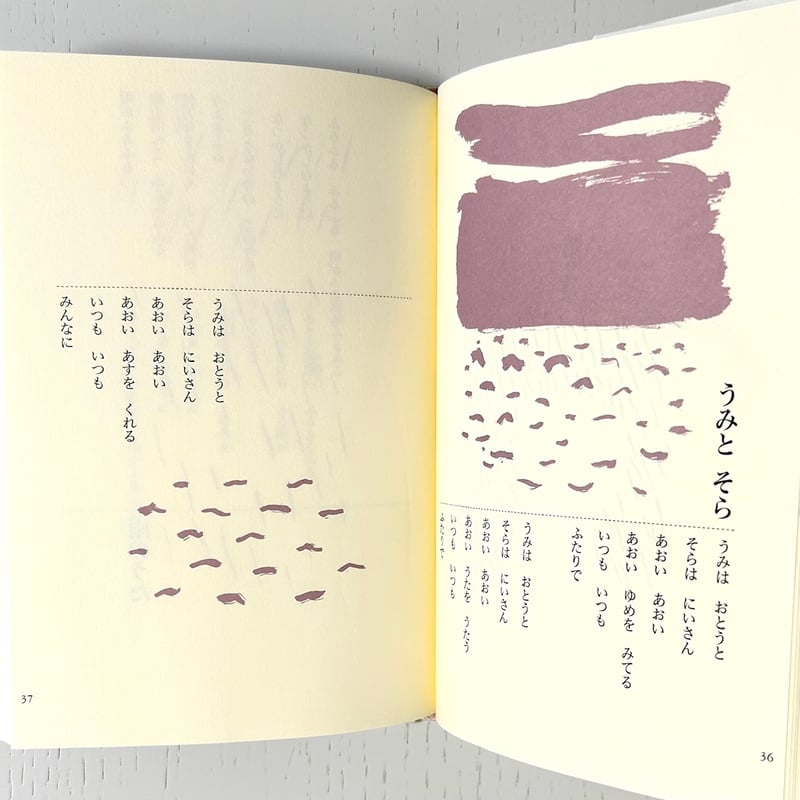 うみと そら
うみは おとうと
そらは にいさん
あおい あおい
あおい ゆめを みてる
いつも いつも
ふたりで
うみは おとうと
そらは にいさん
あおい あおい
あおい うたを うたう
いつも いつも
ふたりで
36
うみは おとうと
そらは にいさん
あおい あおい
あおい あすを くれる
いつも いつも
みんなに
37